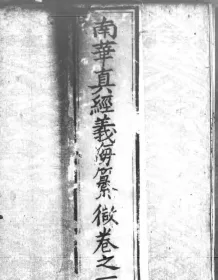 南華真經義海纂微卷之一